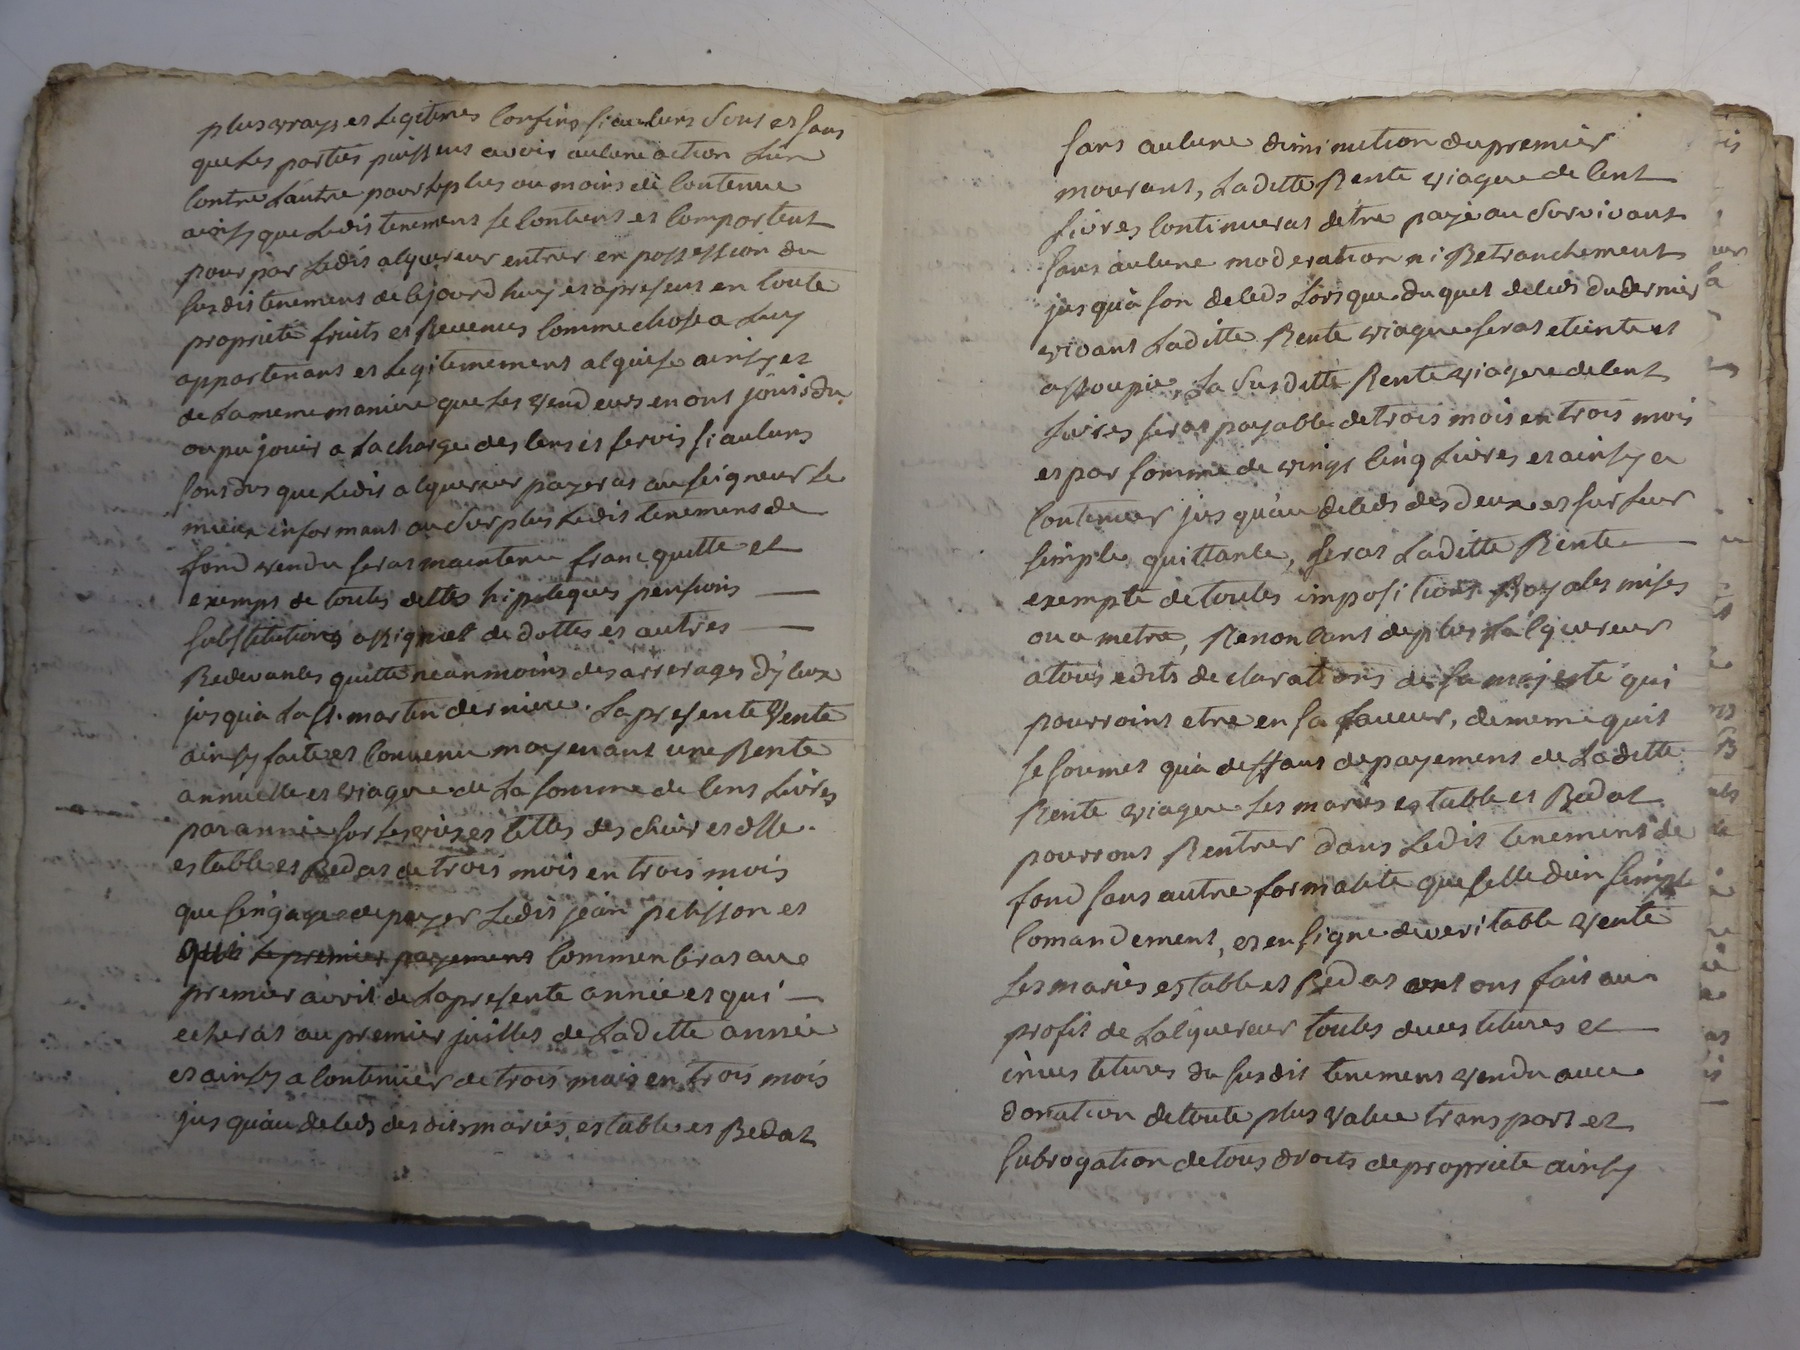 plus vrays et Legitimes Confins si aucuns Sont et sans
que Les parties puissent avoir aucune action Lun
Contre Lautre pour Leplus ou moins de Contenue
ainsy que Ledit tenement se Contient et Comportent
pour par Ledit acquereur entrer en possession du
susdit tenement de cejourd huy et apresent en toute
proprieté fruits et Revenus Comme chose a Luy
appartenant et Legitimement acquise ainsy et
de La meme maniere que Les vendeurs en ont joüis du
ou pu jouir a La charge des Cens et servis si aucuns
sont dus que Ledit acquereur payeras au seigneur Le
mieux informant au Surplus Ledit tenement de
fond vendu seras maintenu franc quitte et
exempt de toutes dettes hipoteques pensions
substitutions assignat de dottes et autres
Redevances quitte neanmoins des arrerages d'yceux
jusqua La st. martin derniere. La presente Vente
ainsy faite et Convenu moyenant une Rente
annuelle et viagere de La somme de Cent Livres
par année sur Les vies et tettes des chier et dlle.
estable et Bedat de trois mois en trois mois
que sengage de payer Ledit jean pelisson et
dont Le premier payement Commenceras au
premier avril de Lapresente année et qui
echeras au premier juillet de Laditte année
et ainsy a Continuer de trois mois en trois mois
jus quau deceds des dits mariés estable et Bedat
sans aucune diminution du premier
mourant, Laditte Rente viagere de Cent
Livres Continueras detre payé au Survivant
sans aucune moderation ni Retranchement
jus qua son deceds Lorsque duquel deceds du dernier
vivant Laditte Rente viagere seras eteinte et
assoupie, La Susditte Rente viagere de Cent
Livres seras payable de trois mois en trois mois
et par somme de vingt Cinq Livres et ainsy a
Continuer jus quau deceds des deux et sur Leur
simple quittance, seras Laditte Rente
exempte de toutes impositions Royales mises
ou a metre, Renoncant de plus Lacquereur
a tous edits declarations de sa majesté qui
pourroint etre en sa faveur, de meme quil
se soumet qua deffaut de payement de Laditte
Rente viagere Les mariés estable et Bedat
pourront Rentrer dans Ledit tenement de
fond sans autre formalite que Celle dun simple
Comandement, et en signe de veritable vente
Les mariés estable et Bedat ont fait au
profit de Lacquereur toutes devestitures et
investitures du susdit tenement vendu avec
donation de toute plus value transport et
subrogation de tous droits de propriete ainsy